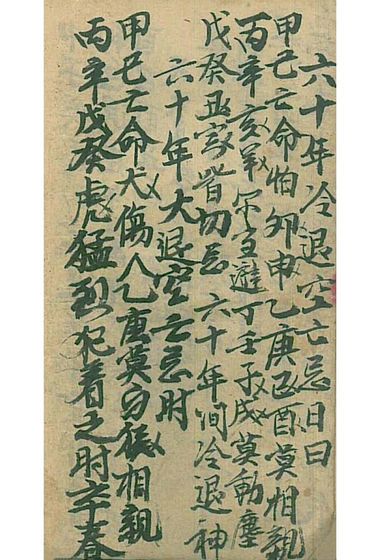 六十年冷退空亡忌日曰
甲己亡命怕卯申乙庚巳酉莫相親
丙辛亥羊尔当避丁壬子戌莫動塵
戊癸丑家皆切忌六十年间冷退神
六十年大退空亡忌时
甲己亡命犬傷人乙庚莫与猴相親
丙辛戊癸虎猛烈犯着之时卒春